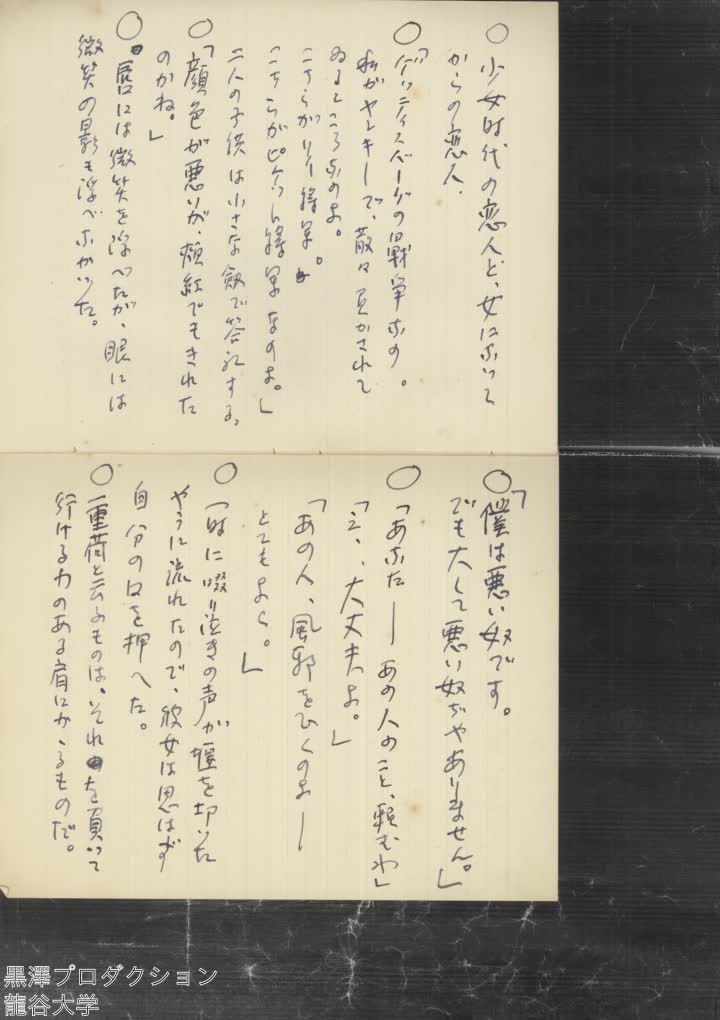 ○少女時代の恋人と、女になって
からの恋人、
○「ゲッティスバーグの戦争なの。
私がヤンキーで、散々負かされて
ゐるところなのよ。
こちらがリー将軍。
こちらがピケット将軍なのよ。」
二人の子供は小さな剣で答礼する。
○「顔色が悪いが、頬紅でもきれた
のかね。」
○唇には微笑を浮べたが、眼には
微笑の影も浮べなかった。
○「僕は悪い奴です。
でも大して悪い奴ぢやありません。」
○「あなた──あの人のこと、頼むわ」
「えゝ、大丈夫よ。」
「あの人、風邪をひくのよ──
とてもよく。」
○一時に啜り泣きの声が堰を切った
やうに流れたので、彼女は思はず
自分の口を押へた。
○重荷と云ふものは、それを負って
行ける力のある肩にかゝるものだ。
黒澤プロダクション
龍谷大学